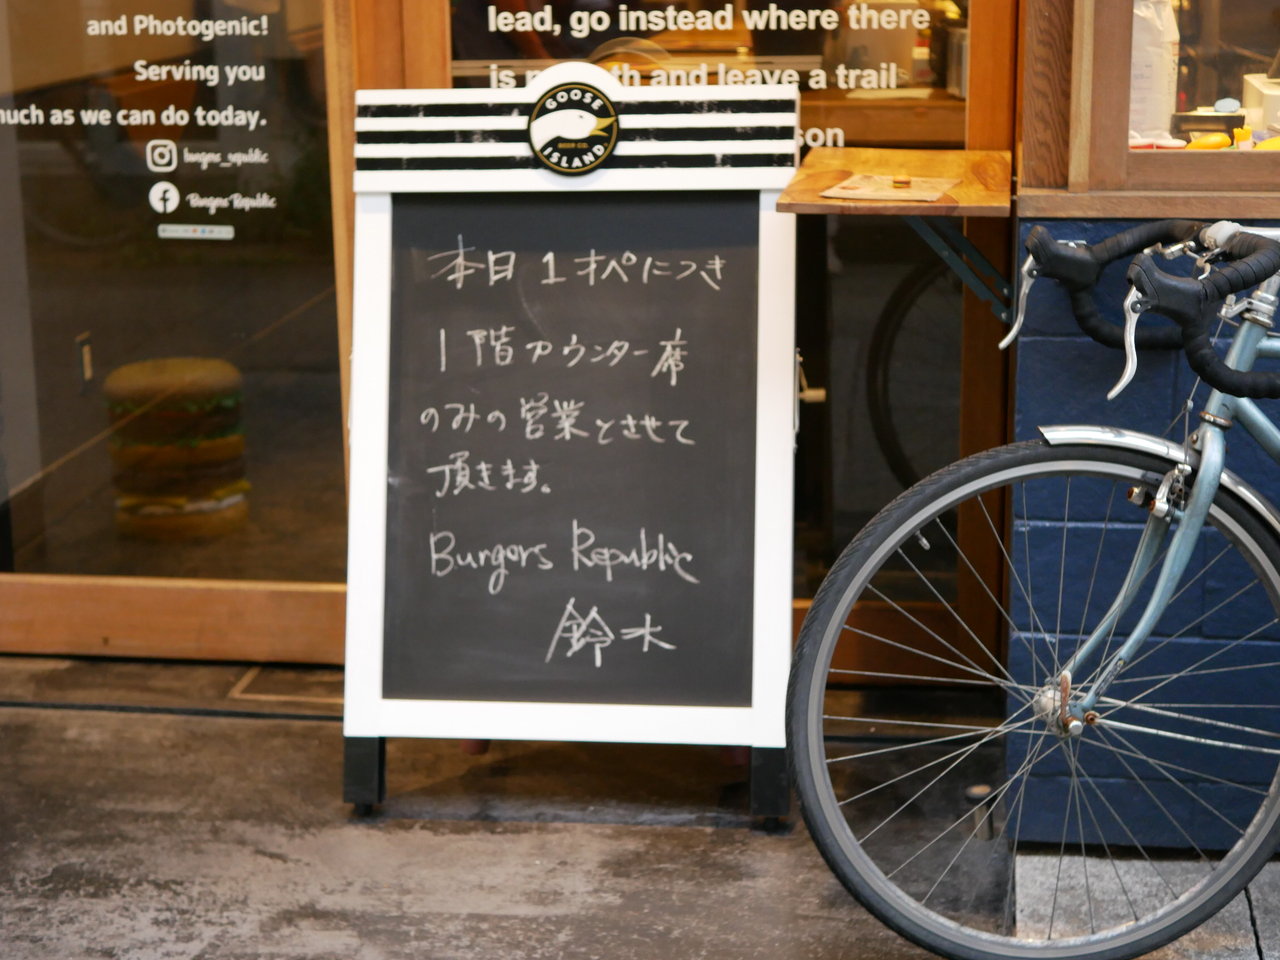 and Photogenic!
Serving you
much as we can do today.
burgers_republic
Burgers Republic
lead, go instead where there
is no path and leave a trail
son
GOOSE
BEER CO.
ISLAND
本日 1オペにつき
1階カウンター席
のみの営業とさせて
頂きます。
Burgers Republic
鈴木